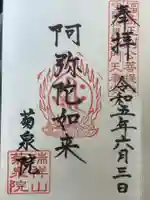 奉拝
令和五年六月三日
阿弥陀如来
菊泉院